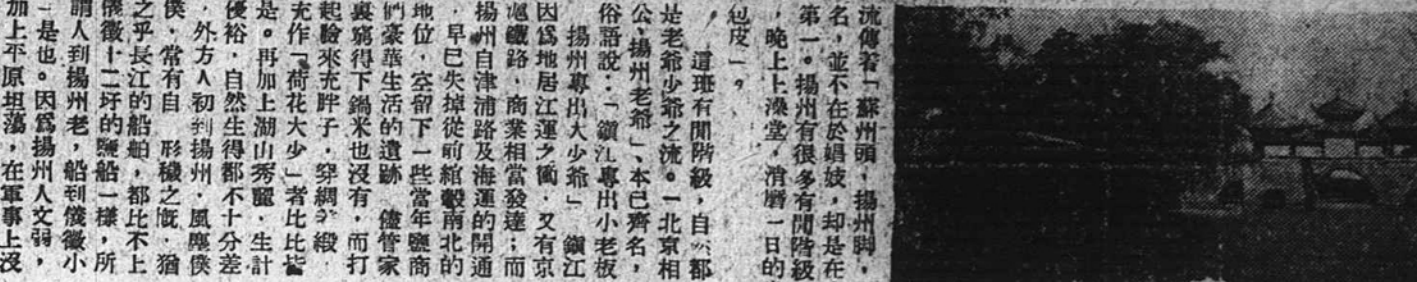 流傳着「蘇州頭，揚州脚，
名，並不在於娼妓，却是在
第一。揚州有很多有閒階級
，晚上上澡堂，消磨一日的
包皮」。
這班有閒階級，自然都
是老爺少爺之流。「北京相
公、揚州老爺」、本已齊名，
俗語說：「鎭江專出小老板
揚州專出大少爺」鎭江
因爲地居江運之衝．又有京
滬鐵路．商業相當發達；而
揚州自津浦路及海運的開通
．早已失掉從前綰轂南北的
地位，空留下一些當年鹽商
們豪華生活的遺跡　儘管家
裏窮得下鍋米也沒有，而打
起臉來充胖子，穿綢着緞
充作「荷花大少」者比比皆
是。再加上湖山秀麗．生計
優裕，自然生得都不十分差
．外方人初到揚州．風塵僕
僕．常有自　形穢之慨．猶
之乎長江的船舶，都比不上
儀徵十二圩的鹽船一樣，所
謂人到揚州老，船到儀徵小
」是也。因爲揚州人文弱，
加上平原坦蕩，在軍事上沒